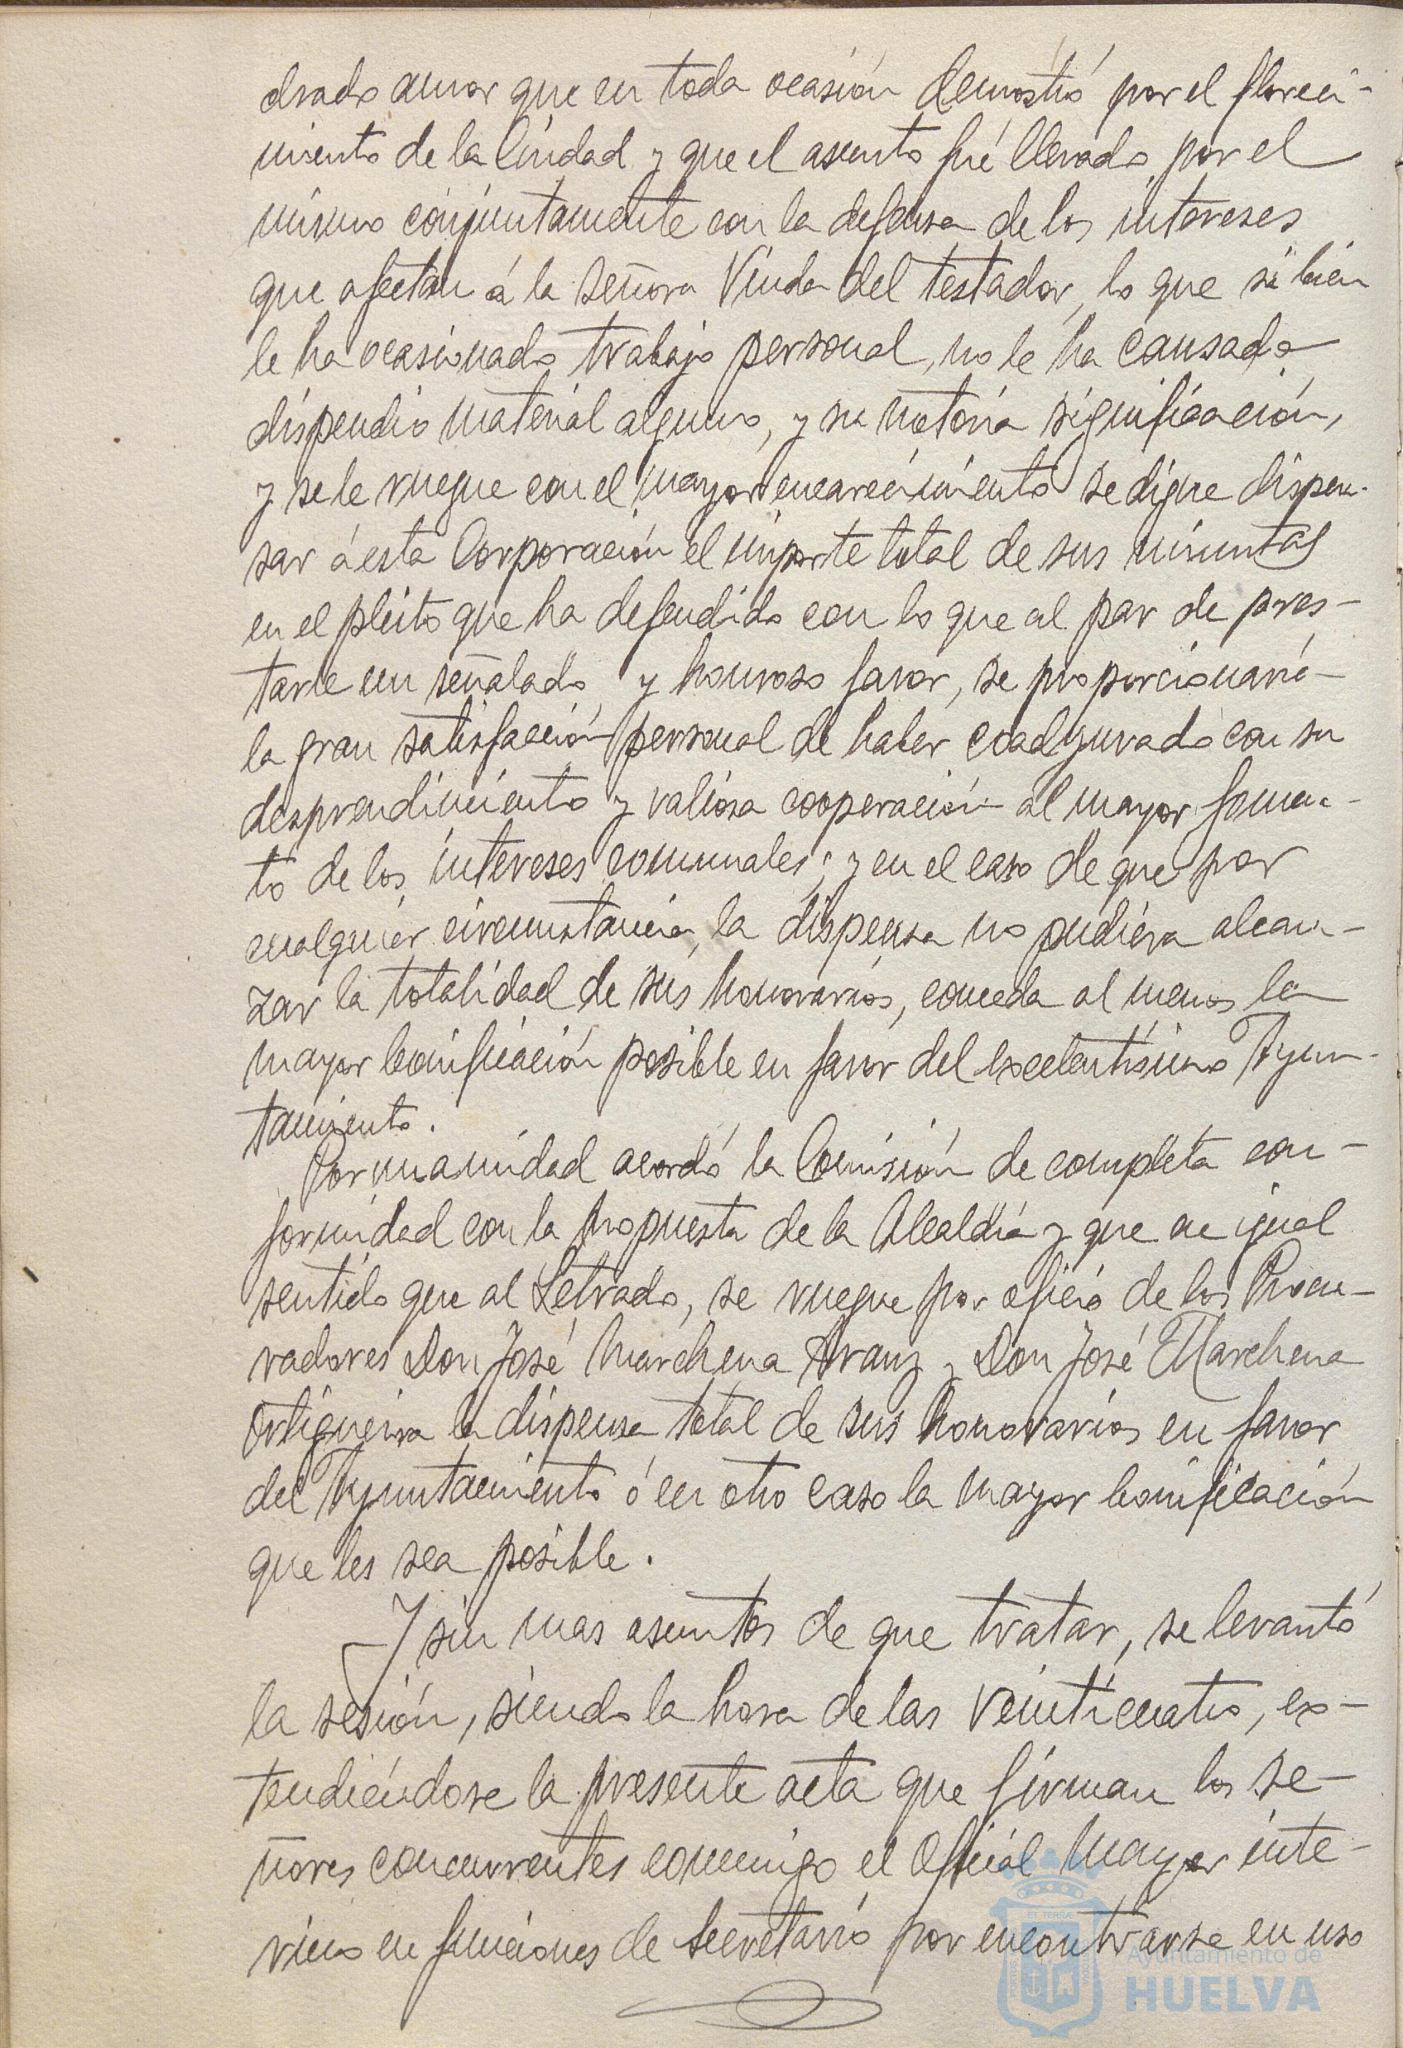 drado amor que en toda ocasión demostró por el floreci-
miento de la Ciudad y que el asunto fué llevado por el
mismo conjuntamente con la defensa de los intereses
que afectan á la señora Viuda del testador, lo que si bien
le ha ocasionado trabajo personal, no le ha causado
dispendio material alguno, y su notoria significación,
y se le ruegue con el mayor encarecimiento se digne dispen-
sar á esta Corporación el importe total de sus minutas
en el pleito que ha defendido con lo que al par de pres-
tarle un señalado y honroso favor, se proporcionaría
la gran satisfacción personal de haber coadyuvado con su
desprendimiento y valiosa cooperación al mayor fomen-
to de los intereses comunales; y en el caso de que por
cualquier circunstancia, la dispensa no pudiera alcan-
zar la totalidad de sus honorarios, conceda al menos la
mayor bonificación posible en favor del Excelentísimo Ayun-
tamiento.
Por unanimidad acordó la Comisión de completa con-
formidad con la propuesta de la Alcaldía y que en igual
sentido que al Letrado, se ruegue por oficio de los Procu-
radores Don José Marchena Aranz y Don José Marchena
Ortigueira la dispensa total de sus honorarios en favor
del Ayuntamiento ó en otro caso la mayor bonificación
que les sea posible.
Y sin mas asuntos de que tratar, se levantó
la sesión, siendo la hora de las veinticuatro, ex-
tendiéndose la presente acta que firman los se-
ñores concurrentes conmigo el Oficial Mayor inte-
rino en funciones de Secretario por encontrarse en uso
Ayuntamiento de
HUELVA